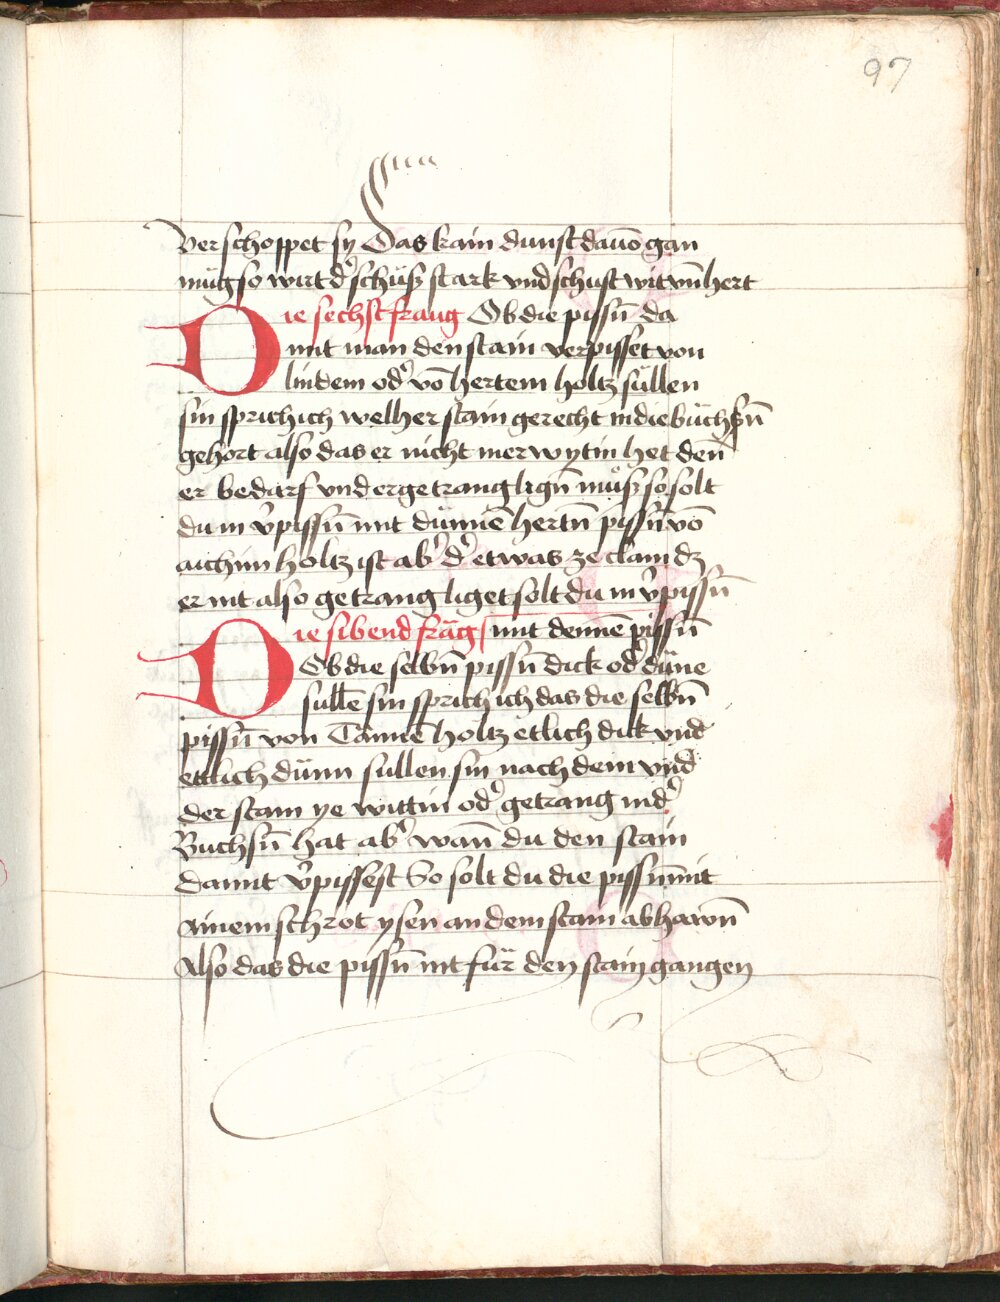 97
verschoppet sy Das kain dunst dauō gan
mŭg so wirt dˀ schŭß stark vnd schŭst wit vn̄ hert
Die sechst fraug Ob die pissn̄ da
mit man den stain verpisset von
lindem odˀ vō hertem holtz sŭllen
sin sprich ich welher stain gerecht in die bŭchßn̄
gehort also das er nicht mer wytin het den̄
er bedarf vnd er getrang lign̄ mŭß so solt
du in v̄pissn̄ mit dŭnnē hertn̄ pissn̄ vō
aichim holtz ist abˀ dˀ etwas ze clain dz
er nit also getrang liget solt du in v̄pissn̄
Die sibend frăg mit dennē pissn̄
Ob die selbn̄ pissn̄ dick odˀ dŭne
sullē sin sprich ich das die selbn̄
pissn̄ von Tannē holtz etlich dick vnd
ettlich dŭnn sullen sin nach dem vnd
der stain ye wittin odˀ getrang in dˀ
Buchsn̄ hat abˀ wan̄ du den stain
damit v̄pissest So solt du die pissn̄ mit
ainem schrot ysen an dem stain abhawn̄
Also das die pissn̄ nit fŭr den stain gangen